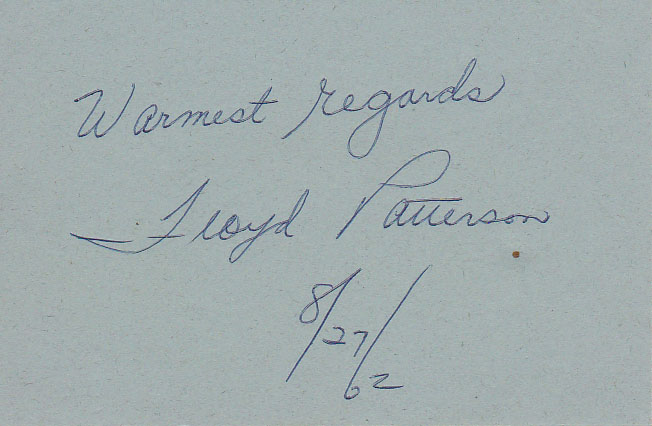 Warmest regards
Floyd Patterson
8/27/62